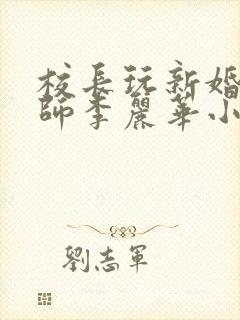 校長玩新婚
師李麗華小
劉志軍